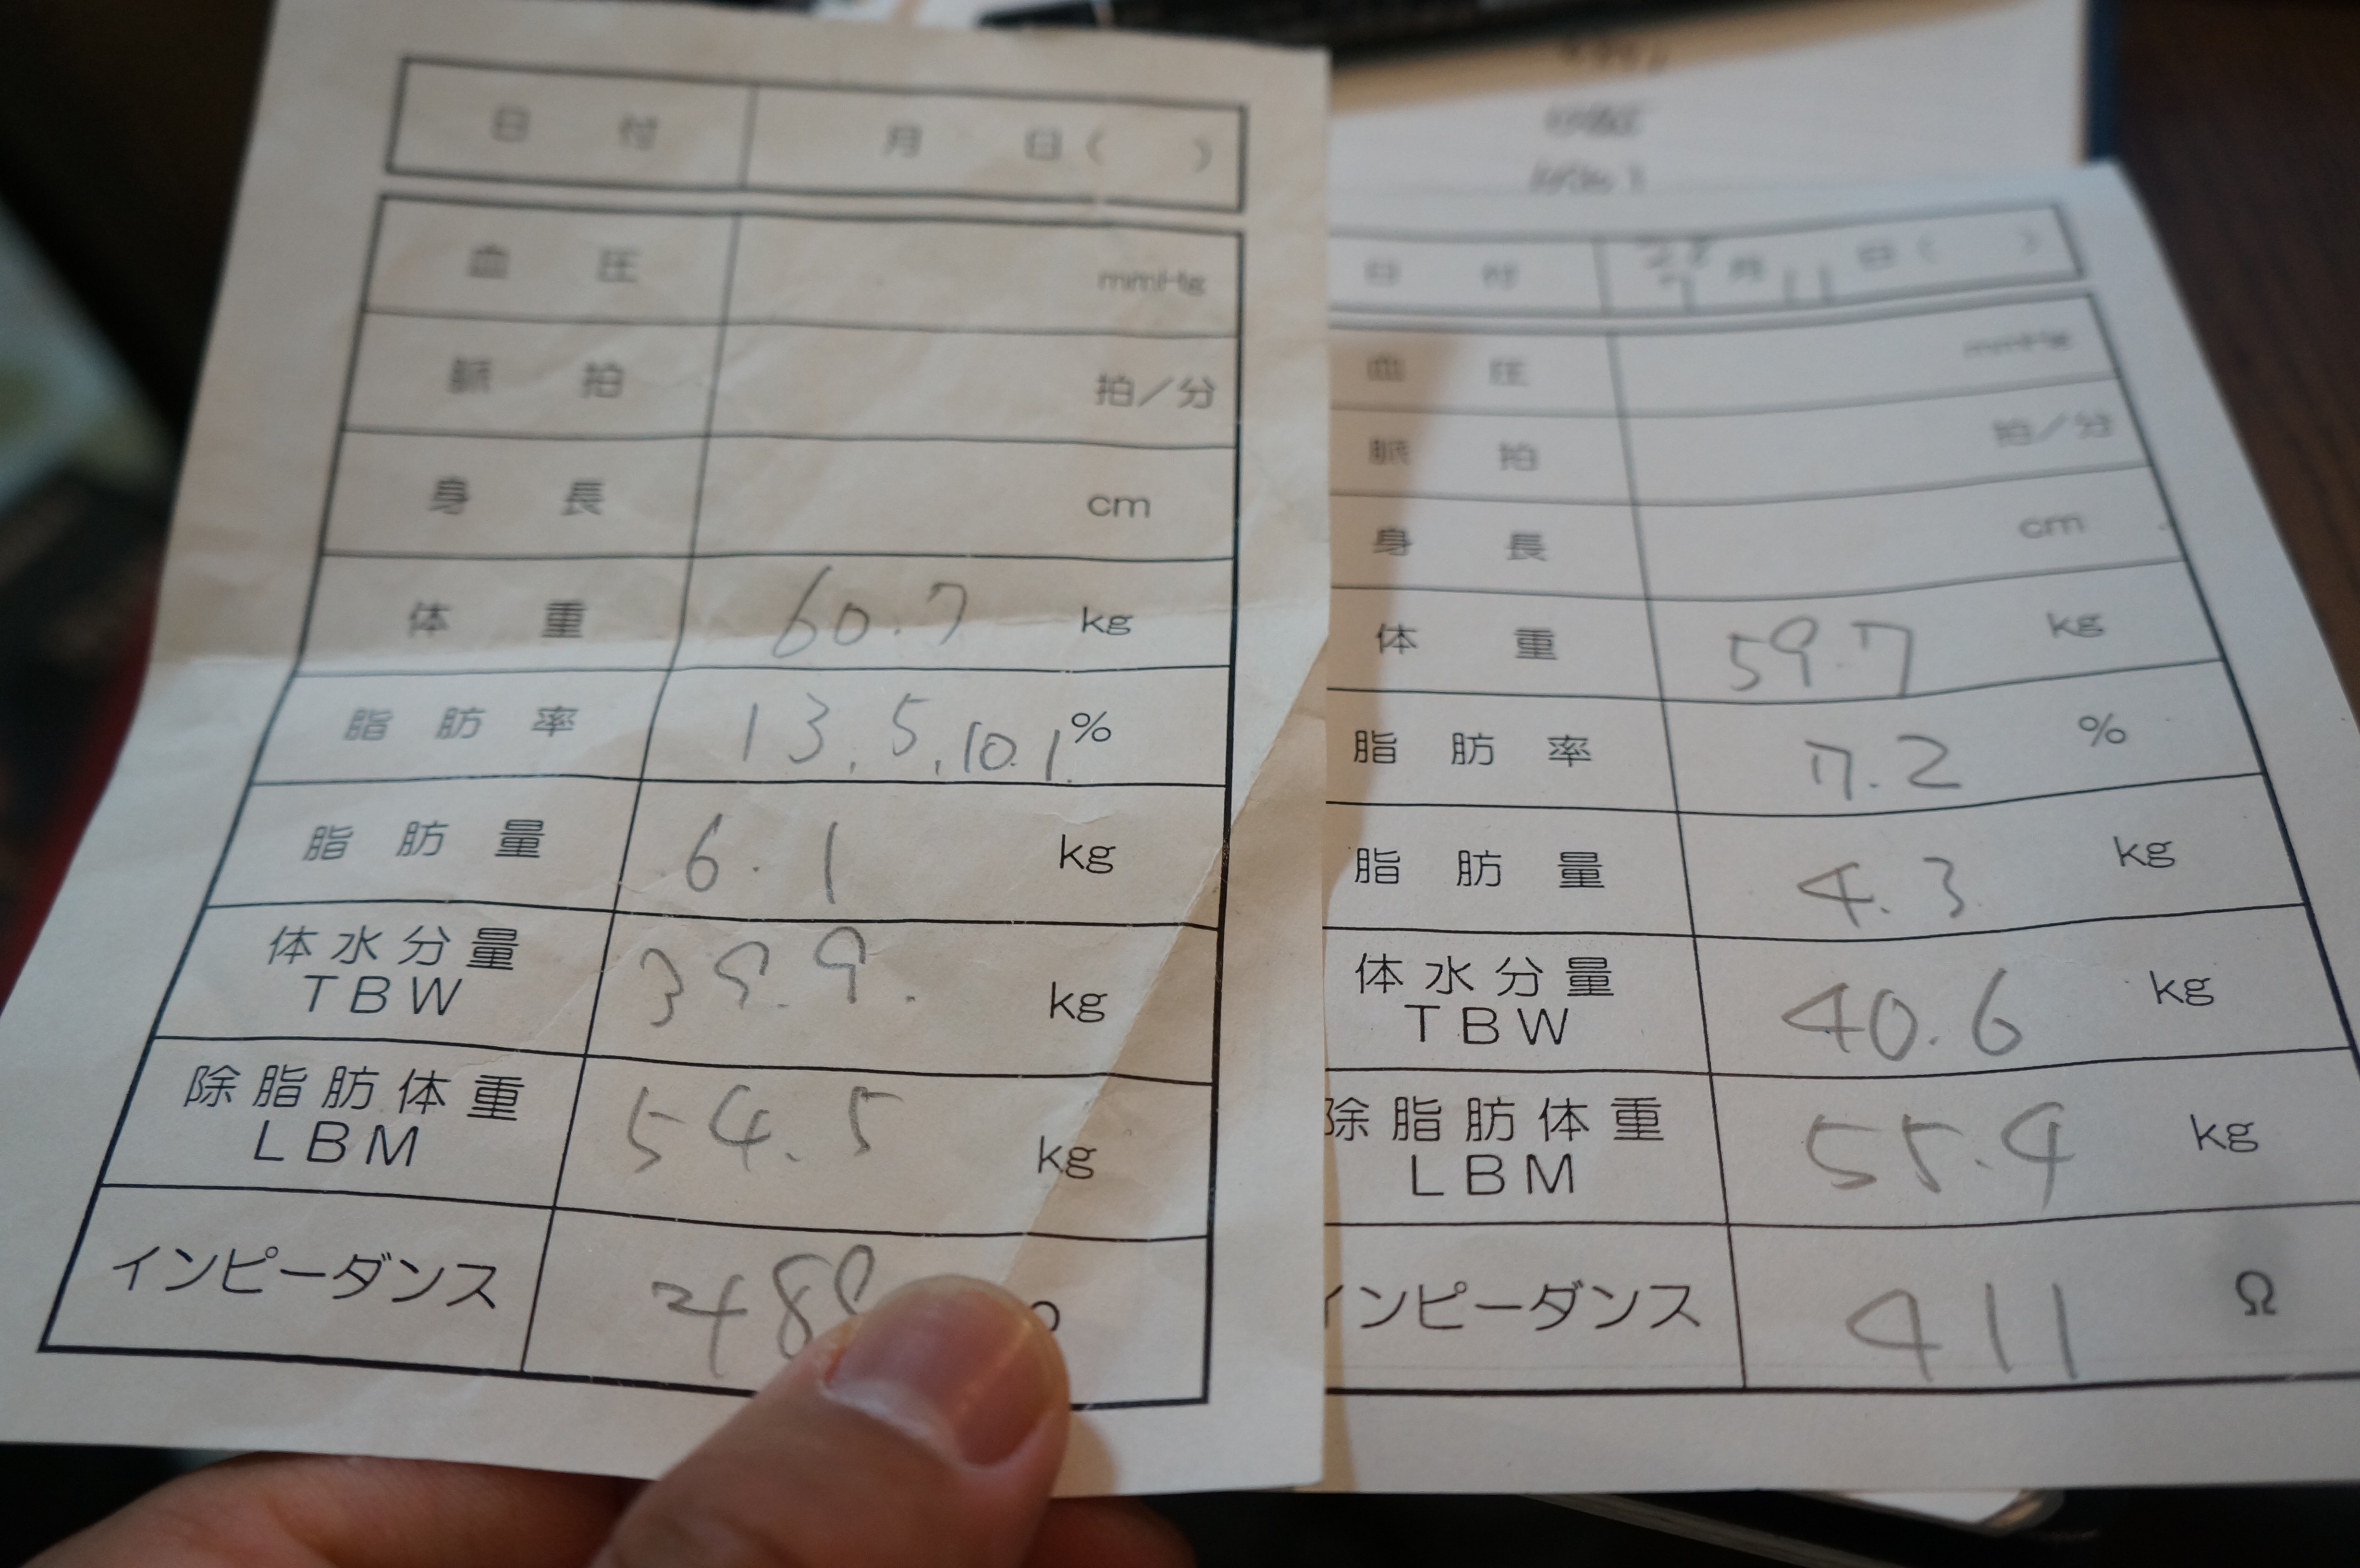 日付 月 日( )
血圧 mmHg
脈拍 拍/分
身長 cm
体重 60.7 kg
脂肪率 13.5, 10.1. %
脂肪量 6.1 kg
体水分量 39.9. kg
TBW
除脂肪体重 54.5 kg
LBM
インピーダンス 48
日付 7月11日( )
血圧 mmHg
脈拍 拍/分
身長 cm
体重 59.7 kg
脂肪率 7.2 %
脂肪量 4.3 kg
体水分量 40.6 kg
TBW
除脂肪体重 55.4 kg
LBM
インピーダンス 411 Ω